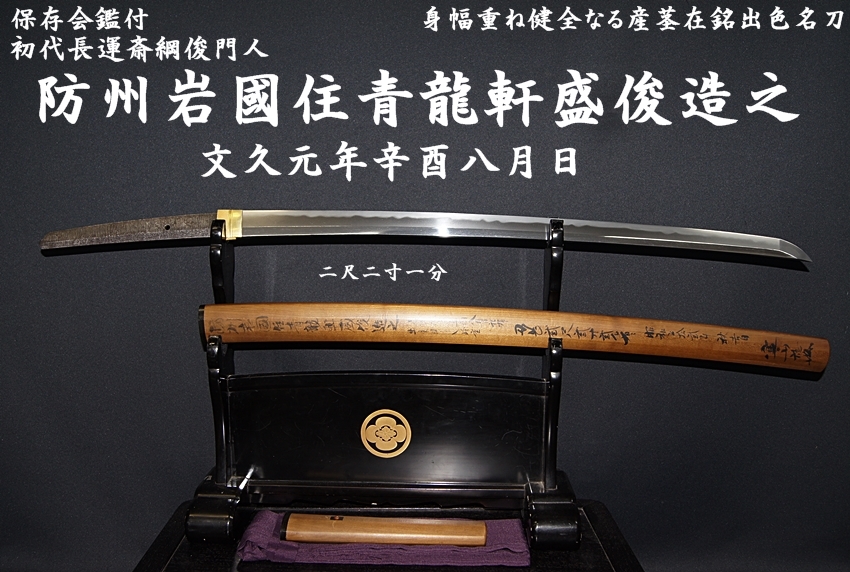 保存会鑑付
初代長運斎綱俊門人
身幅重ね健全なる産茎在銘出色名刀
防州岩國住青龍軒盛俊造之
文久元年辛酉八月日
二尺二寸一分